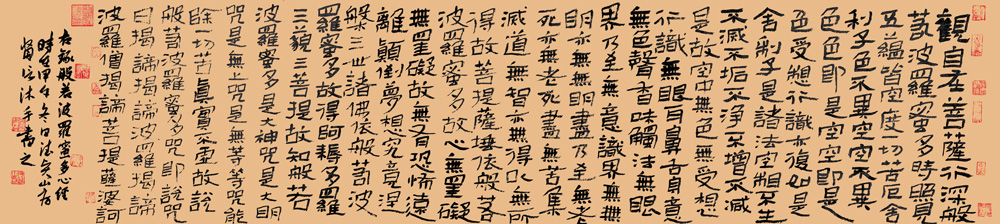 觀自在菩薩行深般
若波羅蜜多時照見
五蘊皆空度一切苦厄舍
利子色不異空空不異
色色即是空空即是
色受想行識亦復如是
舍利子是諸法空相不生
不滅不垢不淨不增不減
是故空中無色無受想
行識無眼耳鼻舌身意
無色聲香味觸法無眼
界乃至無意識界無無
明亦無無明盡乃至無老
死亦無老死盡無苦集
滅道無智亦無得以無所
得故菩提薩埵依般若
波羅蜜多故心無罣礙
無罣礙故無有恐怖遠
離顛倒夢想究竟涅
槃三世諸佛依般若波
羅蜜多故得阿耨多羅
三藐三菩提故知般若
波羅蜜多是大神咒是大明
咒是無上咒是無等等咒能
除一切苦真實不虛故說
般若波羅蜜多咒即說咒
曰揭諦揭諦波羅揭諦
波羅僧揭諦菩提薩婆訶
右錄般若波羅蜜多心經
時在甲午冬日
沐手書之